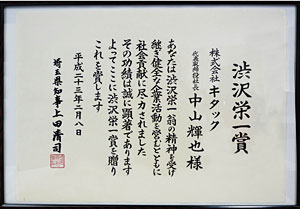 渋沢栄一賞
株式会社 キタック
代表取締役社長 中山輝也様
あなたは渋沢栄一翁の精神を受け
継ぎ健全な企業活動を営むとともに
社会貢献に尽力されました
その功績は誠に顕著であります
よってここに渋沢栄一賞を贈り
これを賞します
平成二十三年二月八日
埼玉県知事上田清司